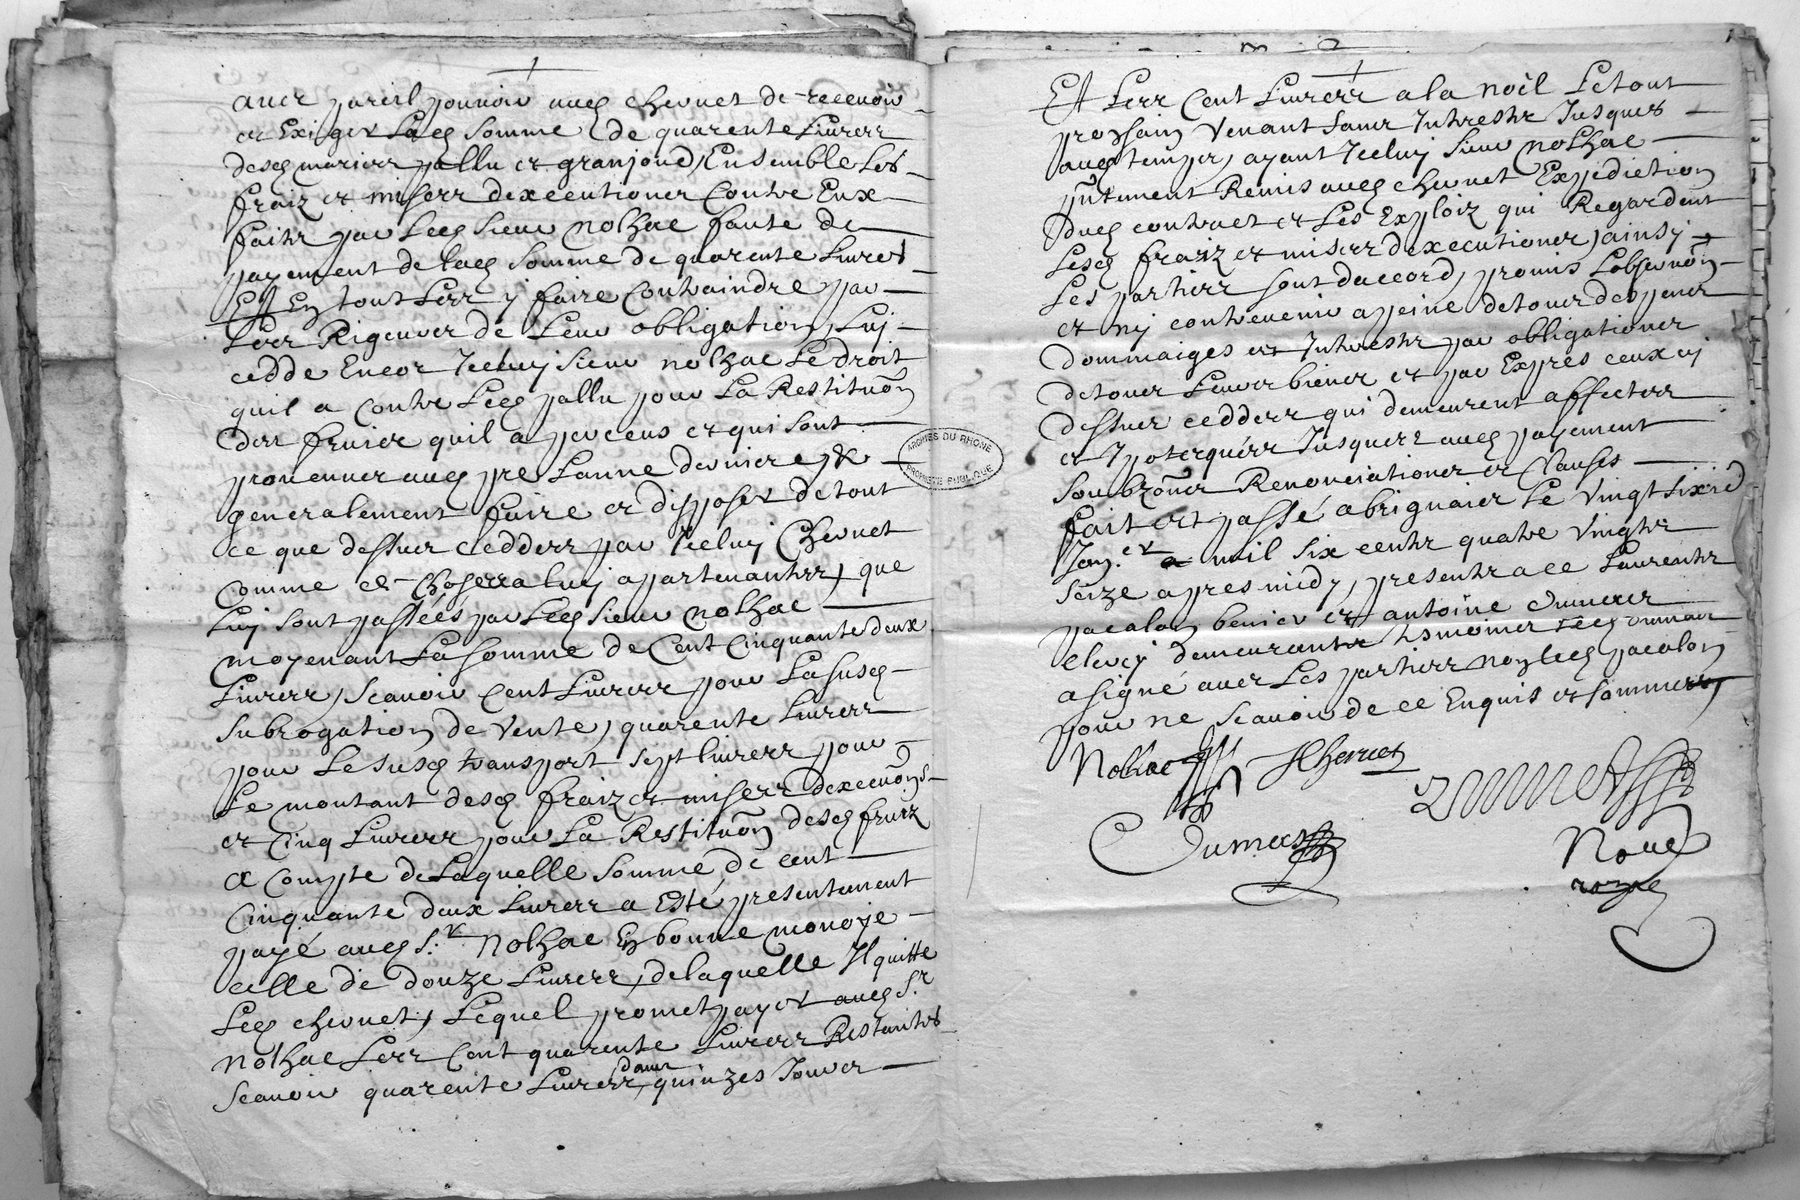 avec pareil pouvoir aud chervet de recevoir
et Exiger Lad somme de quarente Livres
desd mariez pallu et granjond, Ensemble Les
fraiz et mises dexecutions Contre Eux
faits par Led sieur nolhac faute de
payement de lad somme de quarente Livres
Et En tout Les y faire Contraindre par
Les Rigeurs de Leur obligation, Luy
cedde Encor Icelluy sieur nolhac Le droit
quil a Contre Led pallu pour La Restituõn
des fruicts quil a perceus et qui sont
provenus aud pré Lanne derniere, &
generalement faire et disposer de tout
ce que dessus ceddes par Icelluy Chervet
Comme de Choses a luy apartenantes, que
Luy sont passées par Led sieur nolhac
moyenant La somme de Cent Cinquante deux
Livres, Scavoir Cent Livres pour La susd
subrogation de vente, quarente Livres
pour Le susd transport sept livres pour
Le montant desd fraiz et mises dexecuõns
et Cinq Livres pour La Restituõn desd fruiz
a Compte de Laquelle somme de cent
Cinquante deux Livres a Esté presentement
payé aud S.r Nolhac En bonne monoye
celle de douze Livres, de laquelle Il quitte
Led chervet, Lequel promet payer aud S.r
nolhac Les Cent quarente Livres Restantes
Scavoir quarente Livres dans quinzes Jours
Et Les Cent Livres a la noël Le tout
prochain venant sans Interestz Jusques
aud temps, ayant Icelluy sieur nolhac
pñtement Remis aud chervet Expedietion
dud contract et Les Exploiz qui Regardent
Lesd fraiz et mises dexecutions, ainsy
Les parties sont daccord, promis Lobservõn
et ny contrevenir a peine de tous despens
dommaiges et Interestz par obligations
de tous Leurs biens et par Expres ceux cy
dessus ceddes qui demeurent affectes
et Ypotequés Jusques aud payement
soubzõns Renonciations et Clauses
fait et passé a brignais Le vingt sixie
Jan.er mil six centz quatre vingtz
seize apres midy, presentz a ce Laurentz
pacalon benier et antoine dumas
clercq demeurantz
a signé avec Les parties non Led pacalon
pour ne scavoir de ce Enquis et sommes
Nolhac
Chervet
Dumas
Noue
roya
ARCHIVES DU RHONE
PROPRIETE PUBLIQUE